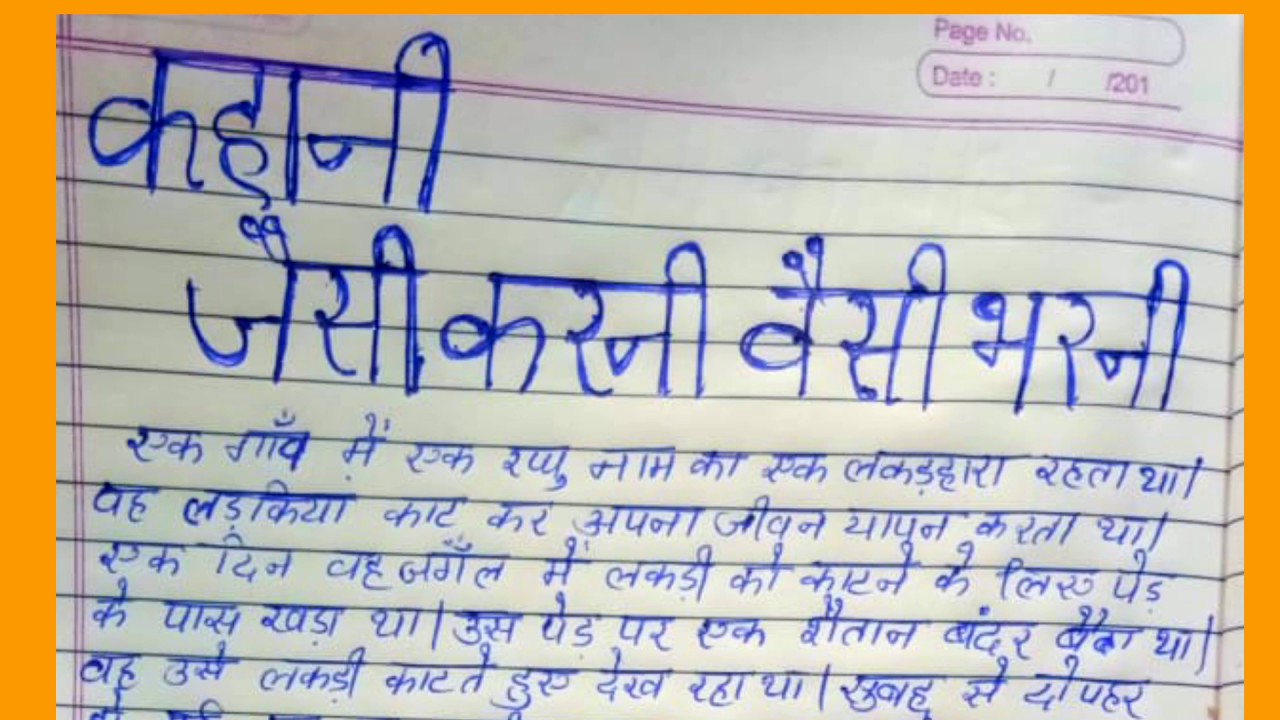 Page No.
Date : / /201
कहानी
जैसी करनी वैसी भरनी
एक गाँव में एक रघु नाम का एक लकड़हारा रहता था।
वह लड़किया काट कर अपना जीवन यापन करता था।
एक दिन वह जगँल में लकड़ी को काटने के लिए पेड़
के पास खड़ा था। उस पेड़ पर एक शैतान बंदर बैठा था।
वह उसे लकड़ी काटते हुए देख रहा था। सुबह से दोपहर